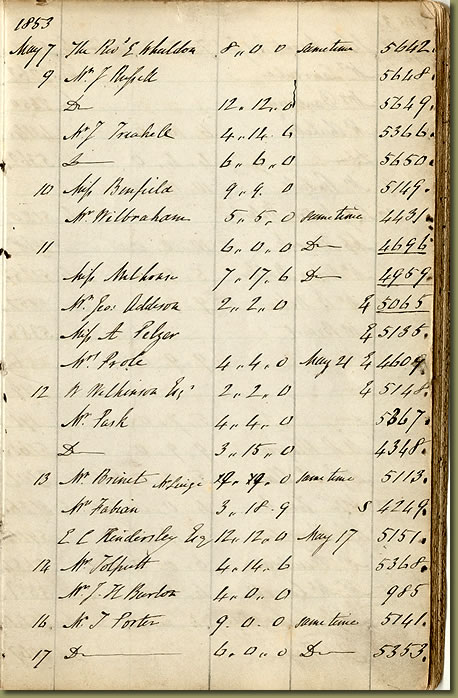 1853
May 7 The Revd E Whieldon 8 " 0 " 0 sometime 5642.
9 Mr J Russell 5648.
Do 12 " 12 " 0 5649.
Mr J Treahell 4 " 14 " 6 5366.
Do 6 " 6 " 0 5650.
10 Miss Benfield 9 " 9 " 0 5149.
Mr Wilbraham 5 " 5 " 0 sometime 4431.
11 6 " 0 " 0 Do 4696
Miss Milhouse 7 " 17 " 6 Do 4959.
Mr Geo: Addison 2 " 2 " 0 & 5065
Miss A Pelzer & 5155.
Mrs Prole 4 " 4 " 0 May 21 & 4609.
12 W Wilkinson Esqr 2 " 2 " 0 & 5148.
Mr Pask 4 " 4 " 0 5367.
Do 3 " 15 " 0 4348.
13 Mr Brinet 0 sometime 5113.
Mr Fabian 3 " 18 " 9 S 4249.
E C Hindersley Esq 12 " 12 " 0 May 17 5151.
14 Mr Tolputt 4 " 14 " 6 5368.
Mr J. H Burton 4 " 0 " 0 985
16 Mr T Porter 9 " 0 " 0 sometime 5141.
17 Do 6 " 0 " 0 Do 5353.